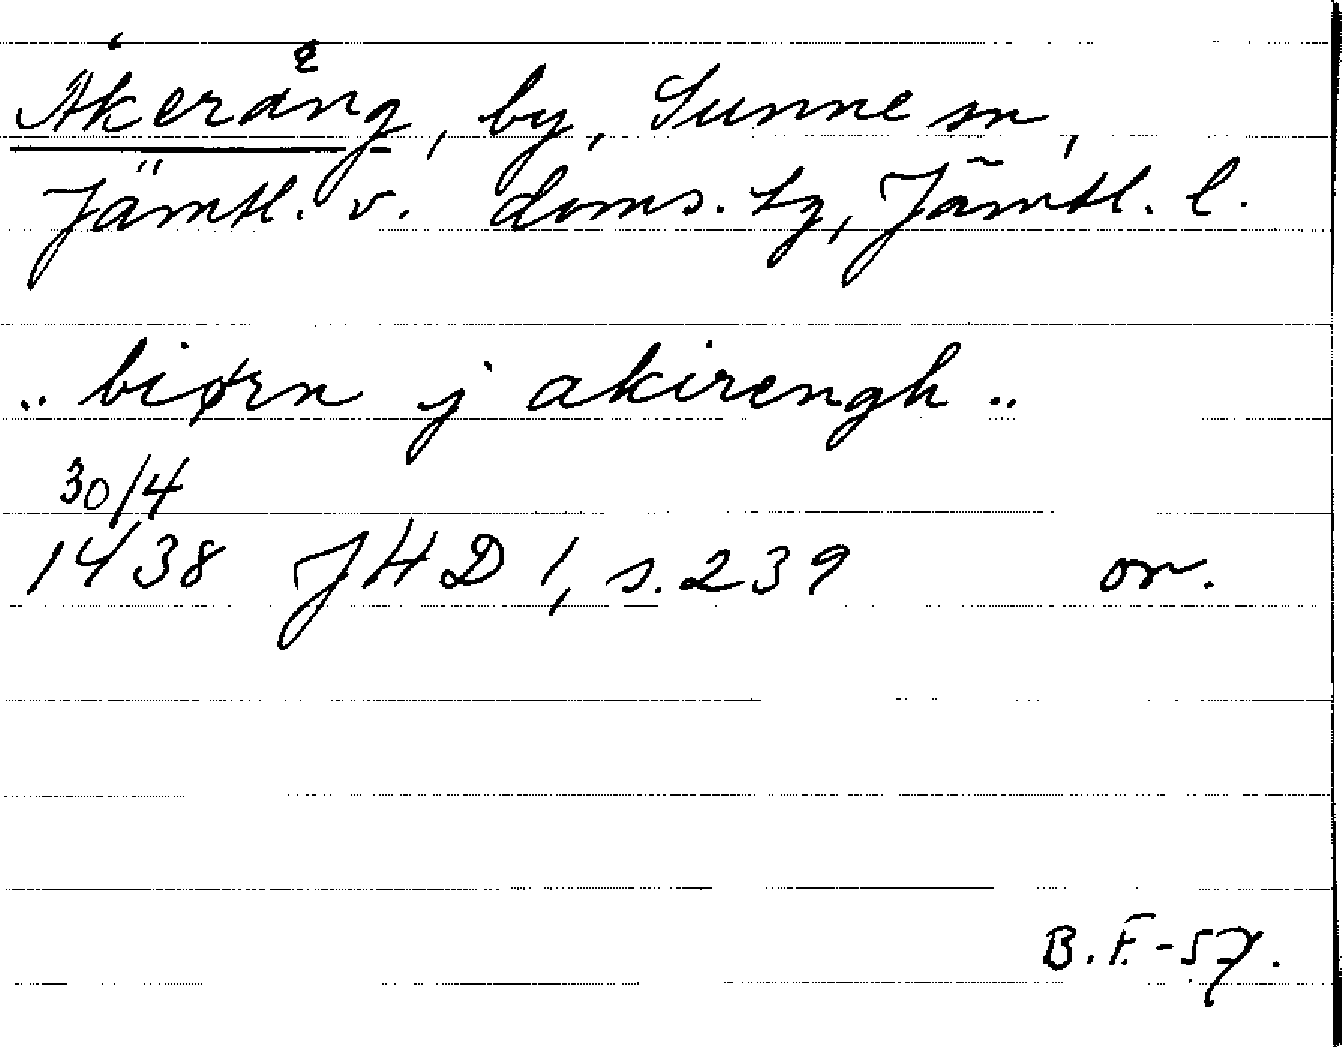 Åkeräng, by, Sunne sn,
Jämtl. v. doms. tg, Jämtl. l.
.. biørn j akirengh ..
30/4
1438 JHD 1, s. 239 or.
B. F. -57.